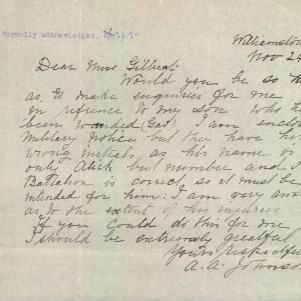 Formally acknowledged, 26/11/17
Williamstow
Nov 24
Dear Miss Gilbert:
Would you be so
as, to make enquiries for me
in refrence to my son who
been wounded (Gas) I am enclo
Military Notice but they have
wrong initials as his name is
only Alick but number and
Battalion is correct, so it must be
intended for him: I am very an
as to the extent of his injuries
If you could do this for me
I should be extremely greatful
Yours respectful
A. A. Johnso